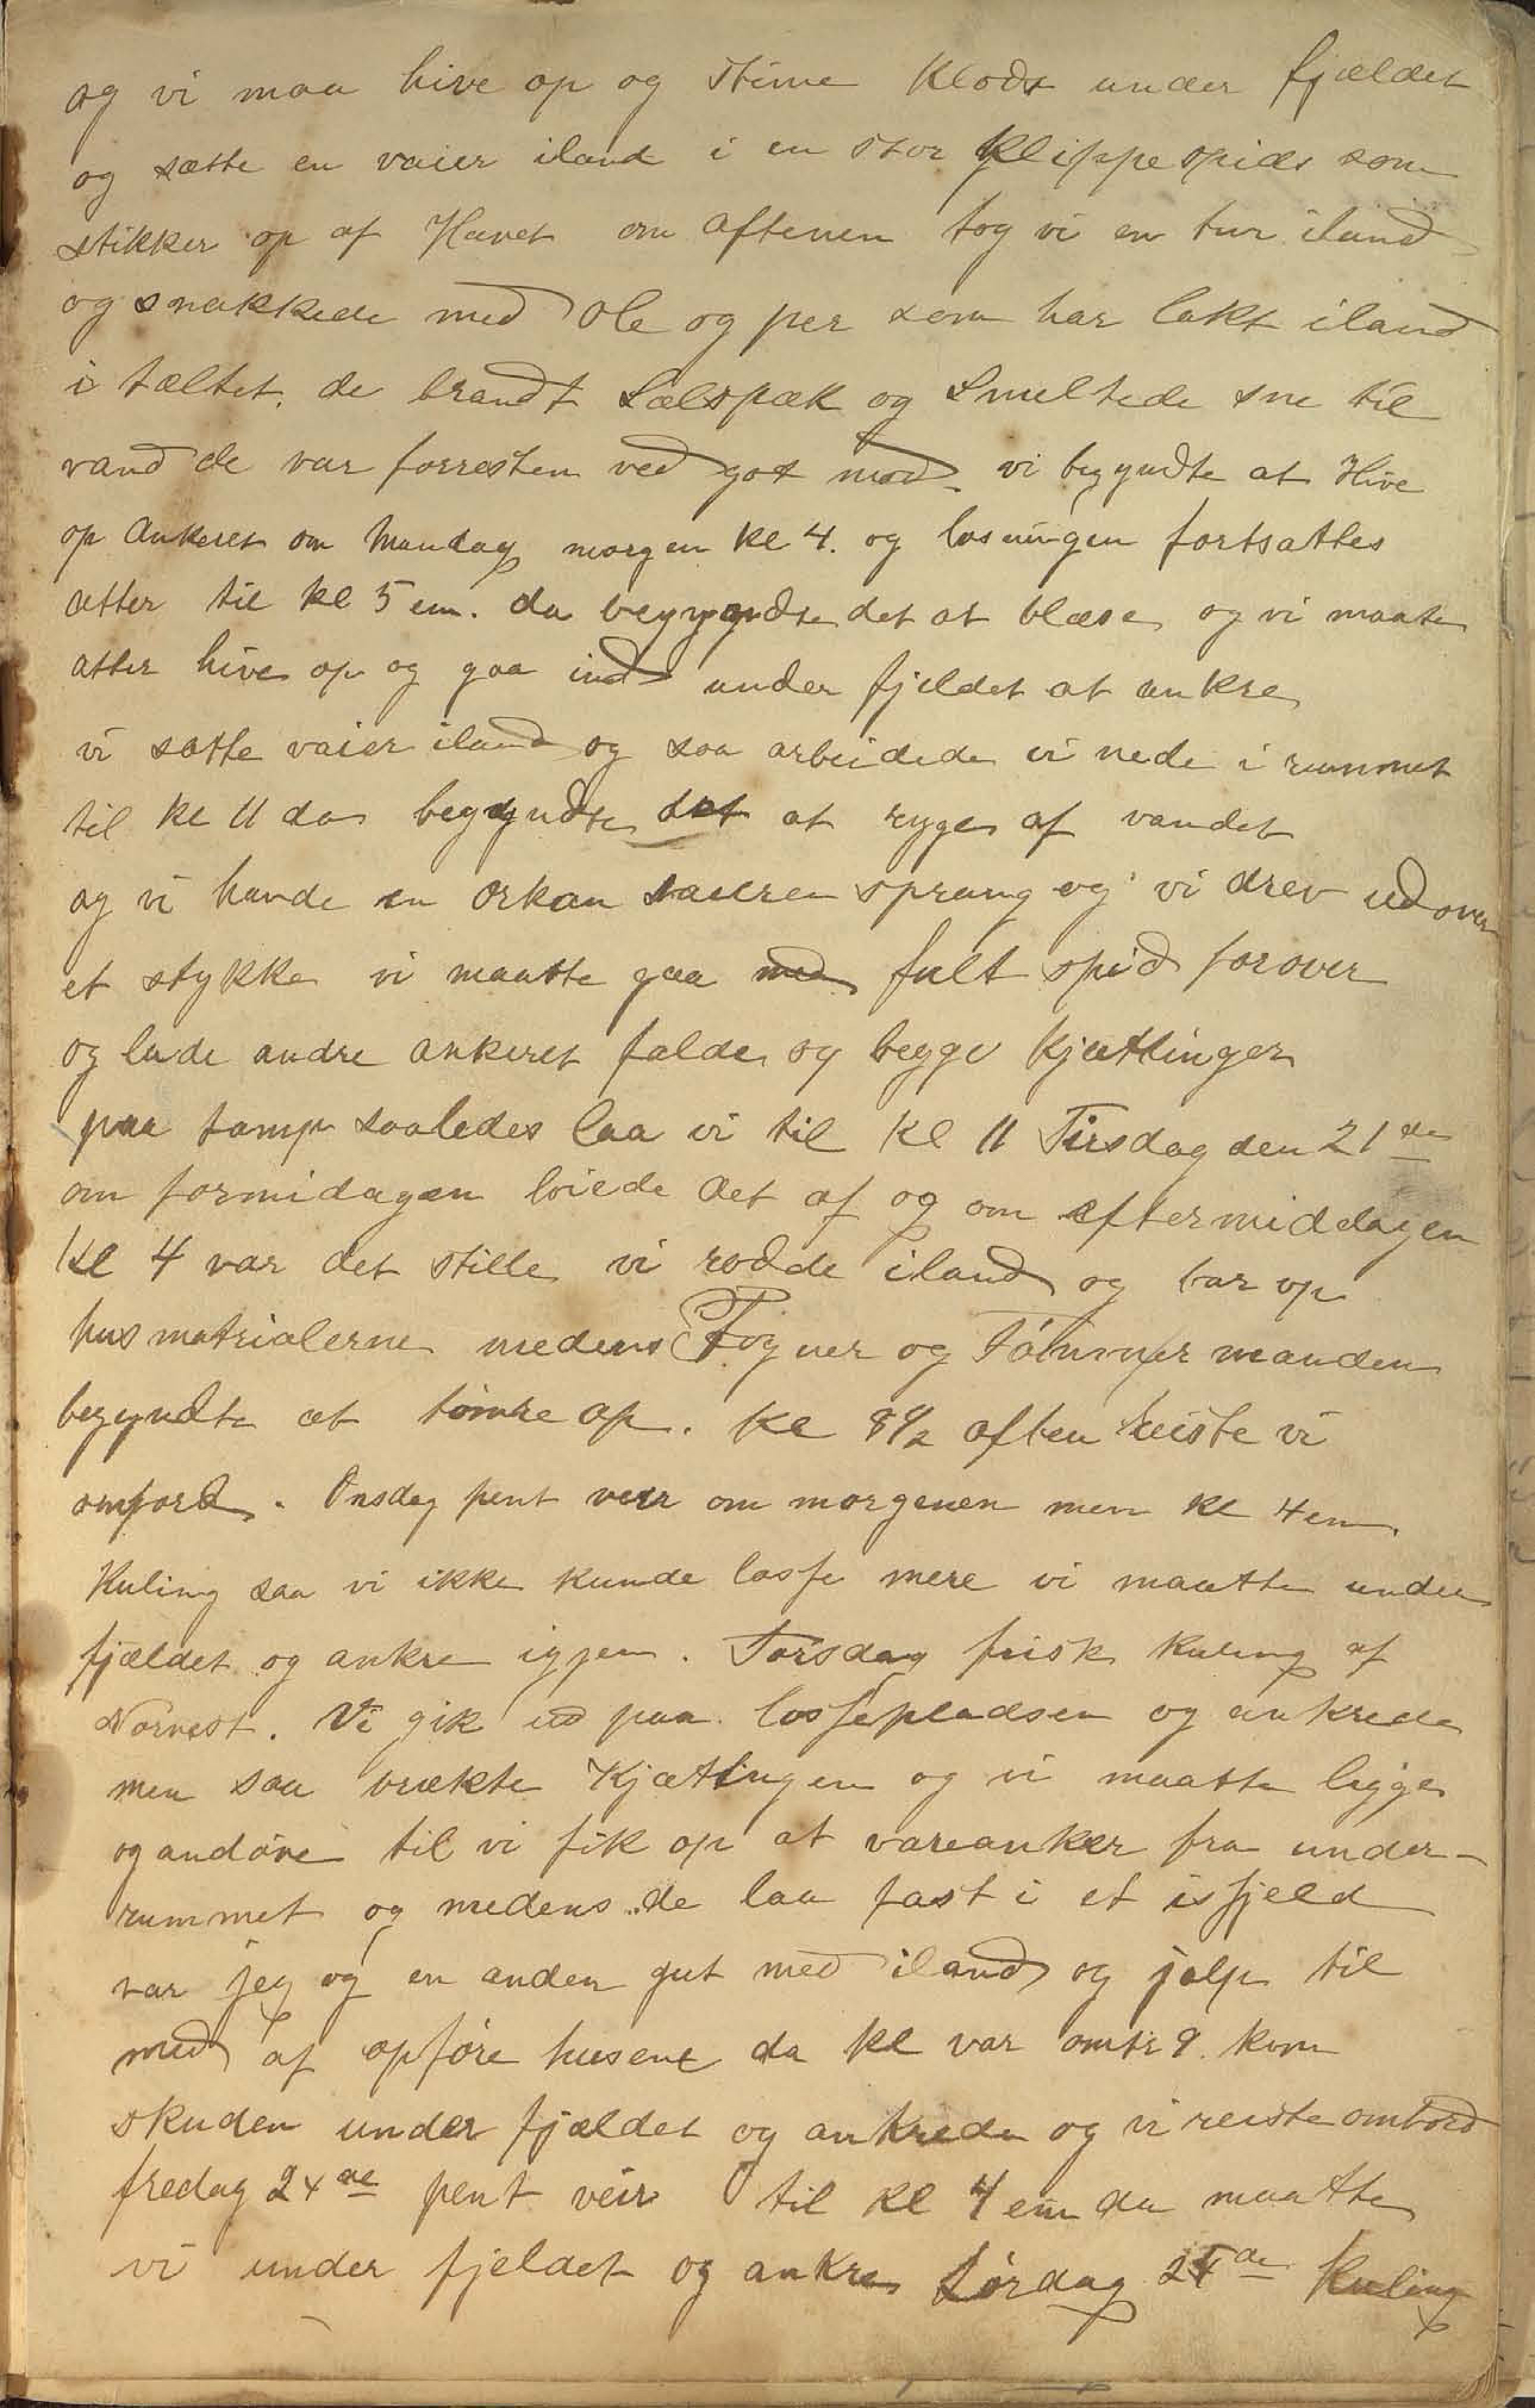 og vi maa hive op og stime klods under fjældet
og sætte en vaier iland i en stor klippespids som
stikker op af Havet om aftenen tog vi en tur iland
og snakkede med Ole og per som har lakt iland
i tæltet. de brandt Sælspæk og Smeltede sne til
vand de var forresten ved got mod. vi begyndte at Hive
op Ankeret om Mandag morgen kl 4. og losningen fortsattes
atter til kl 5 em. da begyyndte det at blæse og vi maate
atter hive op og gaa ind under fjeldet at ankre
vi satte vaier iland og saa arbeidede vi nede i rummet
til kl 11 da begyndte det at ryge af vandet
og vi havde en orkan vaieren sprang og vi drev udover
et stykke vi maatte gaa med fult spid forover
og lade andre ankeret falde og begge kjættinger
paa tamp saaledes laa vi til kl 11 Tirsdag den 21de
om formidagen løiede det af og om eftermiddagen
kl 4 var det stille vi rodde iland og bar op
husmatrialerne medens Fogner og Tømmermanden
begyndte at tømre op. kl 8 1/2 aften reiste vi
ombord. Onsdag pent veir om morgenen men kl 4 em.
Kuling saa vi ikke kunde losse mere vi maatte under
fjældet og ankre igjen. Torsdag frisk kuling af
Norvest. Vi gik ud paa lossepladsen og ankrede
men saa brækte Kjættingen og vi maatte ligge
og andøve til vi fik op at vareanker fra under-
rummet og medens de laa fast i et isfjeld
var jeg og en anden gut med iland og jalp til
med af opføre husene da kl var omtr 9. kom
skuden under fjældet og ankrede og vi reiste ombord
fredag 24de pent veir til kl 4 em da maatte
vi under fjeldet og ankre Lørdag 25de Kuling